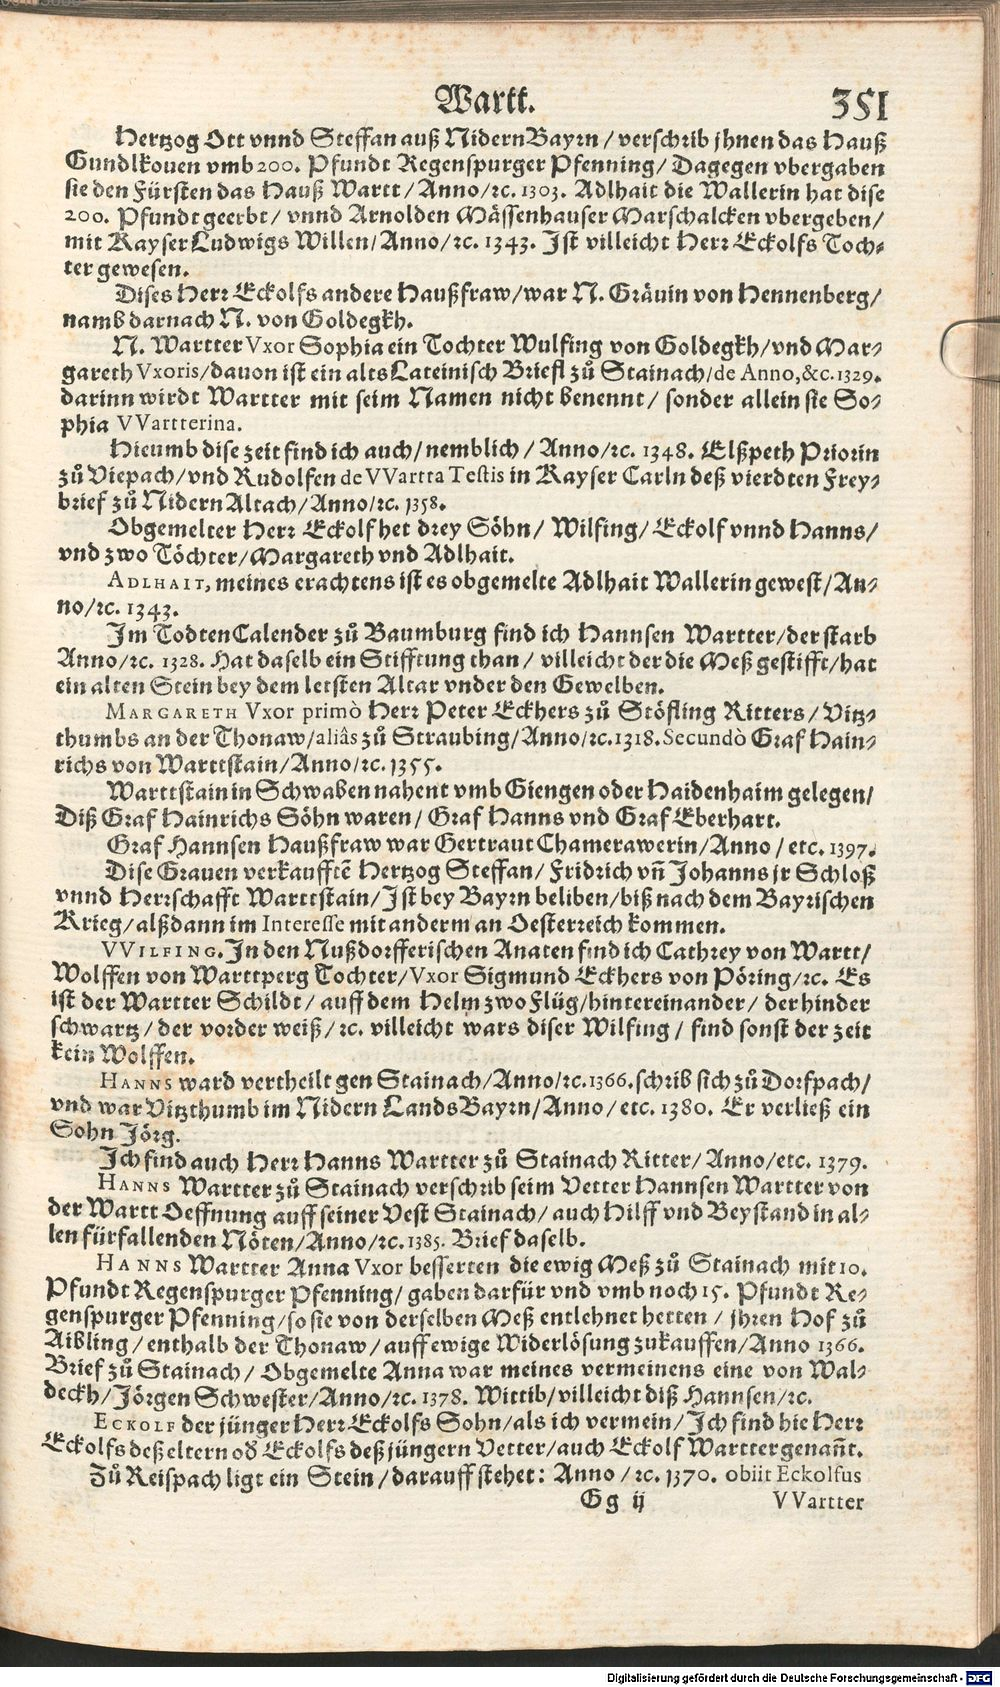 Wartt.
351
Hertzog Ott vnnd Steffan auß NidernBayrn / verschrib jhnen das Hauß
Gundlkouen vmb 200. Pfundt Regenspurger Pfenning / Dagegen vbergaben
sie den Fürsten das Hauß Wartt / Anno / ꝛc. 1303. Adlhait die Wallerin hat dise
200. Pfundt geerbt / vnnd Arnolden Mässenhauser Marschalcken vbergeben /
mit Kayser Ludwigs Willen / Anno / ꝛc. 1343. Ist villeicht Herr Eckolfs Toch-
ter gewesen.
Dises Herr Eckolfs andere Haußfraw / war N. Gräuin von Hennenberg /
namb darnach N. von Goldegkh.
N. Wartter Vxor Sophia ein Tochter Wulfing von Goldegkh / vnd Mar-
gareth Vxoris / dauon ist ein alts Lateinisch Briefl zů Stainach / de Anno, &c. 1329.
darinn wirdt Wartter mit seim Namen nicht benennt / sonder allein sie So-
phia VVartterina.
Hieumb dise zeit find ich auch / nemblich / Anno / ꝛc. 1348. Elßpeth Priorin
zů Viepach / vnd Rudolfen de VVartta Testis in Kayser Carln deß vierdten Frey-
brief zů Nidern Altach / Anno / ꝛc. 1358.
Obgemelter Herr Eckolf het drey Söhn / Wilfing / Eckolf vnnd Hanns /
vnd zwo Töchter / Margareth vnd Adlhait.
ADLHAIT, meines erachtens ist es obgemelte Adlhait Wallerin gewest / An-
no / ꝛc. 1343.
Im TodtenCalender zů Baumburg find ich Hannsen Wartter / der starb
Anno / ꝛc. 1328. Hat daselb ein Stifftung than / villeicht der die Meß gestifft / hat
ein alten Stein bey dem letsten Altar vnder den Gewelben.
MARGARETH Vxor primò Herr Peter Eckhers zů Stöfling Ritters / Vitz-
thumbs an der Thonaw / aliâs zů Straubing / Anno / ꝛc. 1318. Secundò Graf Hain-
richs von Warttstain / Anno / ꝛc. 1355.
Warttstain in Schwaben nahent vmb Giengen oder Haidenhaim gelegen /
Diß Graf Hainrichs Söhn waren / Graf Hanns vnd Graf Eberhart.
Graf Hannsen Haußfraw war Gertraut Chamerawerin / Anno / etc. 1397.
Dise Grauen verkaufftē Hertzog Steffan / Fridrich vñ Johanns jr Schloß
vnnd Herrschafft Warttstain / Ist bey Bayrn beliben / biß nach dem Bayrischen
Krieg / alßdann im Interesse mit anderm an Oesterreich kommen.
VVILFING. In den Nußdorfferischen Anaten find ich Cathrey von Wartt /
Wolffen von Warttperg Tochter / Vxor Sigmund Eckhers von Pöring / ꝛc. Es
ist der Wartter Schildt / auff dem Helm zwo Flüg / hintereinander / der hinder
schwartz / der vorder weiß / ꝛc. villeicht wars diser Wilfing / find sonst der zeit
kein Wolffen.
HANNS ward vertheilt gen Stainach / Anno / ꝛc. 1366. schrib sich zů Dorfpach /
vnd war Vitzthumb im Nidern LandsBayrn / Anno / etc. 1380. Er verließ ein
Sohn Jörg.
Ich find auch Herr Hanns Wartter zů Stainach Ritter / Anno / etc. 1379.
HANNS Wartter zů Stainach verschrib seim Vetter Hannsen Wartter von
der Wartt Oeffnung auff seiner Vest Stainach / auch Hilff vnd Beystand in al-
len fürfallenden Nöten / Anno / ꝛc. 1385. Brief daselb.
HANNS Wartter Anna Vxor besserten die ewig Meß zů Stainach mit 10.
Pfundt Regenspurger Pfenning / gaben darfür vnd vmb noch 15. Pfundt Re-
genspurger Pfenning / so sie von derselben Meß entlehnet hetten / jhren Hof zů
Aibling / enthalb der Thonaw / auff ewige Widerlösung zukauffen / Anno 1366.
Brief zů Stainach / Obgemelte Anna war meines vermeinens eine von Wal-
deckh / Jörgen Schwester / Anno / ꝛc. 1378. Wittib / villeicht diß Hannsen / ꝛc.
ECKOLF der jünger Herr Eckolfs Sohn / als ich vermein / Ich find hie Herr
Eckolfs deß eltern oď Eckolfs deß jüngern Vetter / auch Eckolf Wartter genañt.
Zů Reispach ligt ein Stein / darauff stehet: Anno / ꝛc. 1370. obiit Eckolfus
Gg ij
VVartter
Digitalisierung gefördert durch die Deutsche Forschungsgemeinschaft - DFG